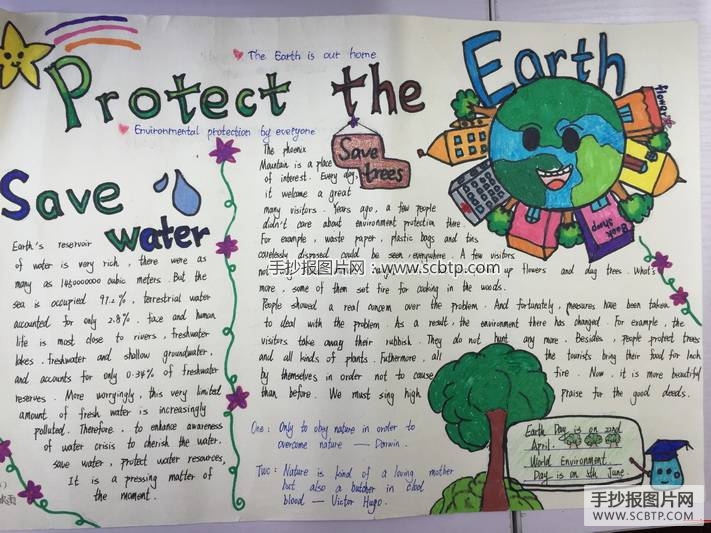 The Earth is our home
Protect the Earth
Environmental protection by everyone
Save
water
Earth's reservoir
of water is very rich, there were as
many as 1450000000 cubic meters. But the
sea is occupied 97.2%, terrestrial water
accounted for only 2.8%. face and human
life is most close to rivers, freshwater
lakes, freshwater and shallow groundwater,
and accounts for only 0.34% of freshwater
reserves. More worryingly, this very limited
amount of fresh water is increasingly
polluted. Therefore, to enhance awareness
of water crisis to cherish the water,
save water, protect water resources,
It is a pressing matter of
the moment.
Save
trees
The phoenix
Mountain is a place
of interest. Every day,
it welcome a great
many visitors. Years ago, a few people
didn't care about environment protection there.
For example, waste paper, plastic bags and tins
carelessly disposed could be seen everywhere. A few visitors
not up flowers and dug trees. What's
more, some of them set fire for cooking in the woods.
People showed a real concern over the problem. And fortunately, measures have been taken
to deal with the problem. As a result, the environment there has changed. For example, the
visitors take away their rubbish. They do not hunt any more. Besides, people protect trees
and all kinds of plants. Futhermore, all the tourists bring their food for lunch
by themselves in order not to cause fire. Now, it is more beautiful
than before. We must sing high praise for the good deeds.
One: Only to obey nature in order to
overcome nature — Darwin.
Two: Nature is kind of a loving mother
but also a butcher in cold
blood — Victor Hugo.
flower
Book
shop
Earth Day is on 22nd
April.
World Environment
Day is on 5th June
手抄报图片网:www.scbtp.com
手抄报图片网
WWW.SCBTP.COM